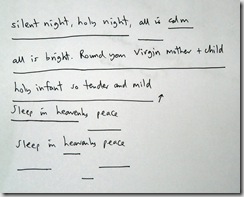 silent night, holy night, all is calm
all is bright. Round yon Virgin mother + child
holy infant so tender and mild
Sleep in heavenly peace
Sleep in heavenly peace